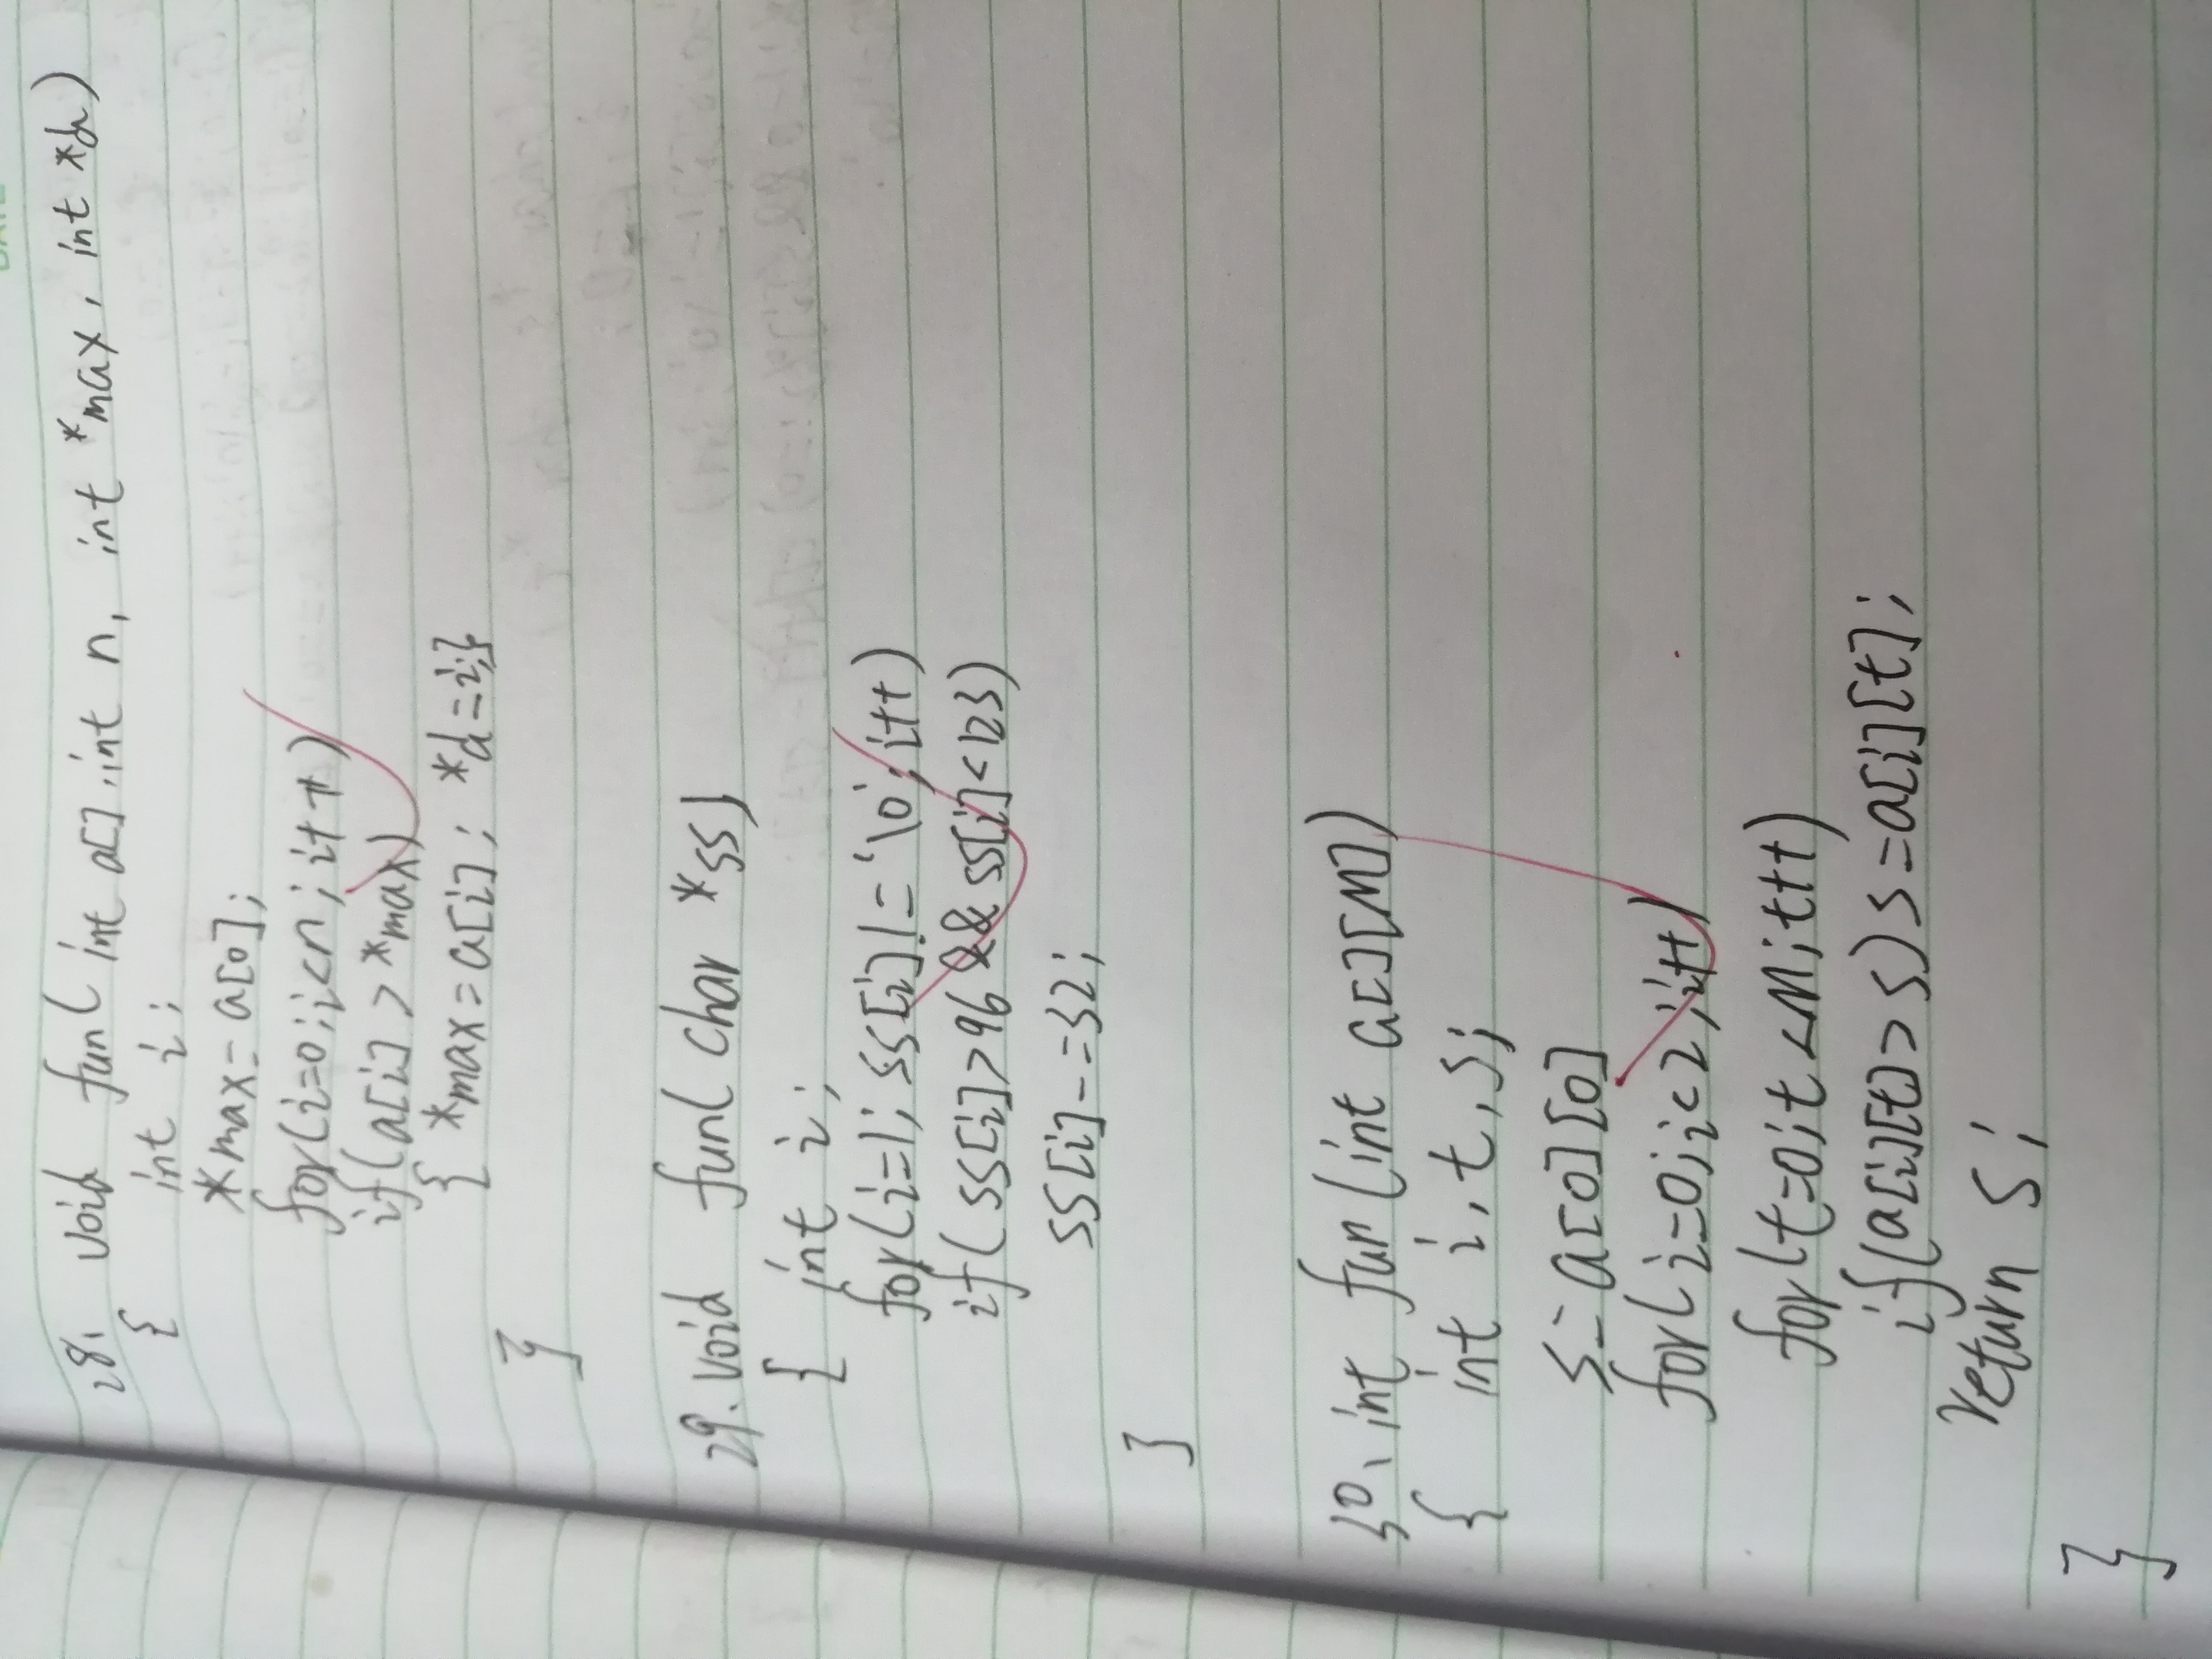 DATE
28、 void fun( int a[], int n, int *max, int *d)
{ int i;
*max= a[0];
for(i=0;i<n; i++)
if(a[i] > *max)
{ *max=a[i]; *d=i;}
}
29. void fun( char *ss)
{ int i;
for(i=1; ss[i]!='\0'; i++)
if( ss[i]>96 && ss[i]<123)
ss[i]-=32;
}
30、int fun (int a[][M])
{ int i, t, s;
s=a[0][0]
for( i=0;i<2;i++)
for(t=0;t<M;t++)
if(a[i][t]>s) s=a[i][t];
return s;
}